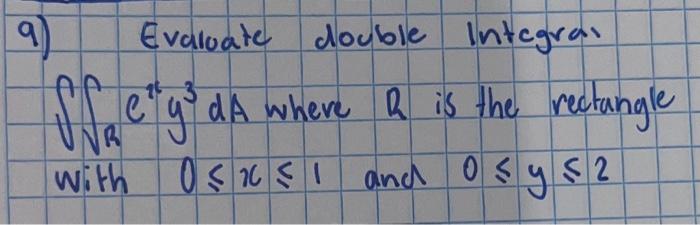 9) Evaluate double Integral
∬_R e^x y^3 dA where R is the rectangle
with 0 ≤ x ≤ 1 and 0 ≤ y ≤ 2